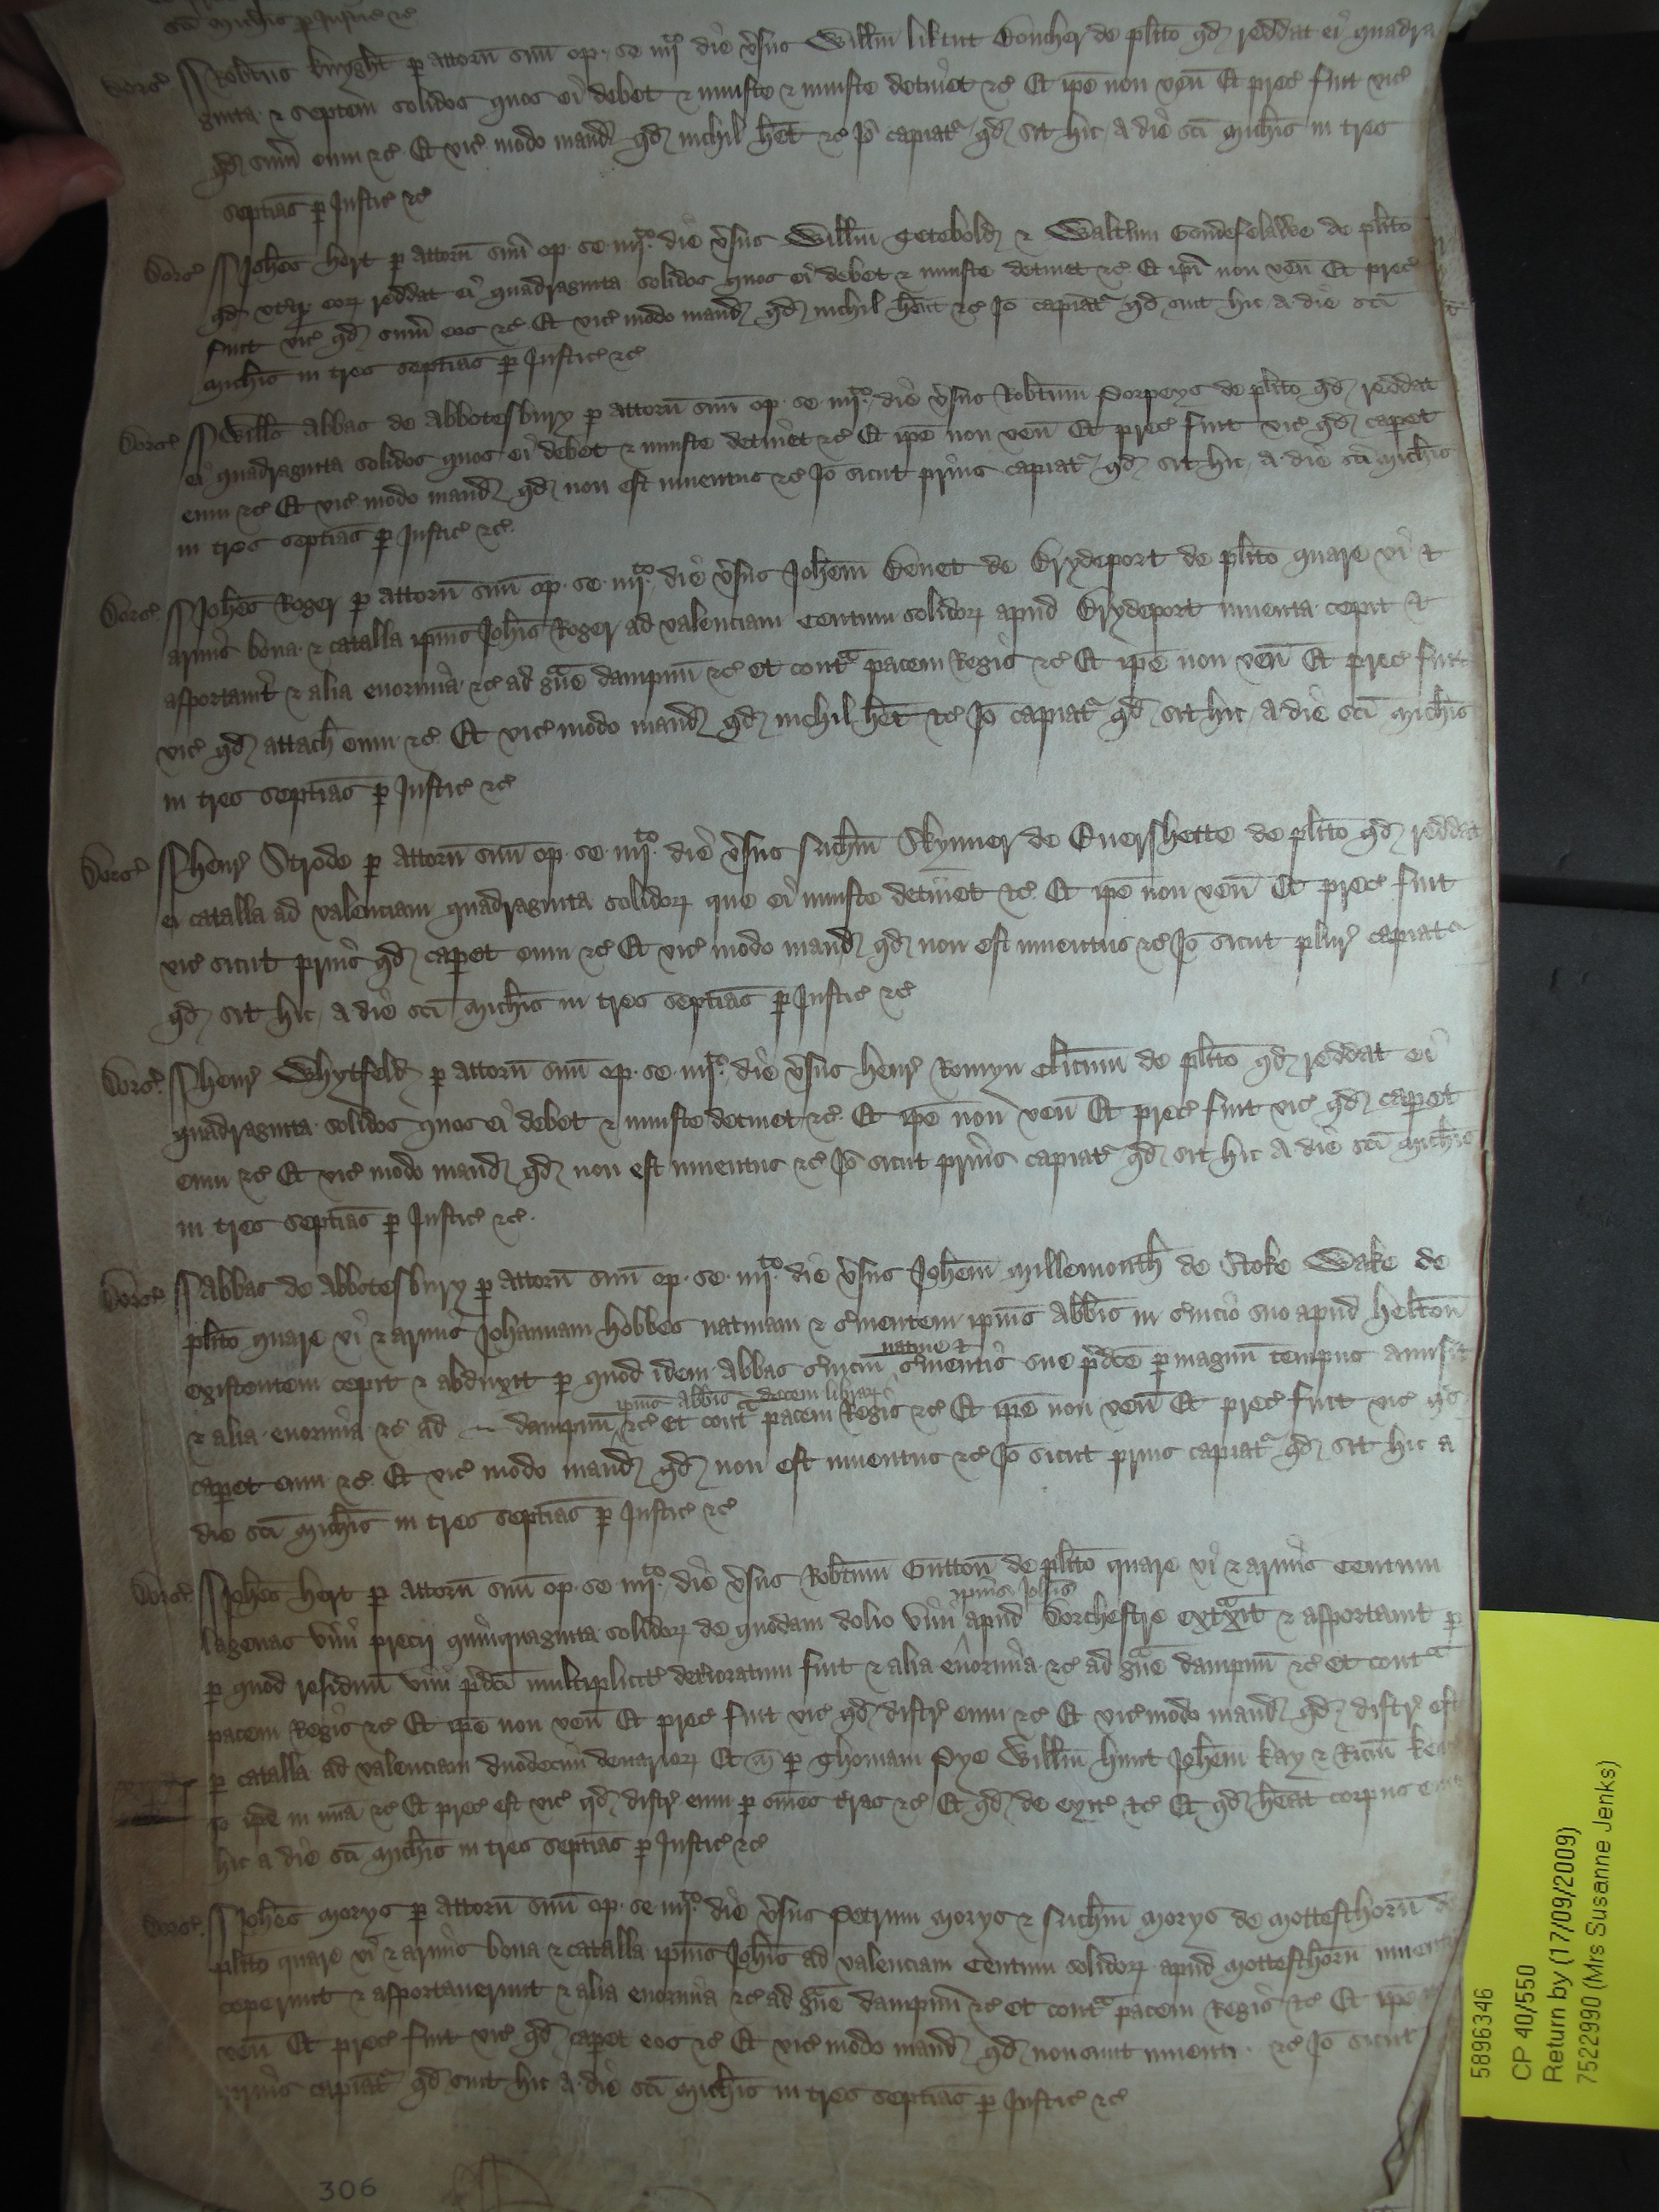 sci Michis p Justic &c
Dors' Robtus knyght p attorn suu op se iiijto die vsus Willm liktut Boucher de plito qd reddat ei quadra
ginta & septem solidos quos ei debet & iniuste & iniuste detinet &c Et ipe non ven Et prec fuit vic
qd sum eum &c Et vic modo mand qd nichil het &c Jo capiat qd sit hic a die sci Michis in tres
septias p Justic &c
Dors' Johes hert p attorn suu op se iiijto die vsus Willm Getebold & Waltm Godefelawe de plito
qd utqz eor reddat ei quadraginta solidos quos ei debet & iniuste detinet &c Et ipi non ven Et prec
fuit vic qd sum eos &c Et vic modo mand qd nichil hent &c Jo capiat qd sint hic a die sci
Michis in tres septias p Justic &c
Dors' Wills abbas de abbotesbury p attorn suu op se iiijto die vsus Robtum Porpeys de plito qd reddat
ei quadraginta solidos quos ei debet & iniuste detinet &c Et ipe non ven Et prec fuit vic qd capet
eum &c Et vic modo mand qd non est inuentus &c Jo sicut prius capiat qd sit hic a die sci Michis
in tres septias p Justic &c
Dors' Johes Roger p attorn suu op se iiijto die vsus Johem Benet de Brydeport de plito quare vi &
armis bona & catalla ipius Johis Roger ad valenciam Centum solidor apud Brydeport inuenta cepit &
asportauit & alia enormia &c ad gue dampnu &c et cont pacem Regis &c Et ipe non ven Et prec fuit
vic qd attach eum &c Et vic modo mand qd nichil het &c Jo capiat qd sit hic a die sci Michis
in tres septias p Justic &c
Dors' henr Strode p attorn suu op se iiijto die vsus Michm Skynner de Euershette de plito qd reddat
ei catalla ad valenciam quadraginta solidor que ei iniuste detinet &c Et ipe non ven Et prec fuit
vic sicut prius qd capet eum &c Et vic modo mand qd non est inuentus &c Jo sicut plur capiat
qd sit hic a die sci Michis in tres septias p Justic &c
Dors' henr Whytfeld p attorn suu op se iiijto die vsus henr Romyn clicum de plito qd reddat ei
quadraginta solidos quos ei debet & iniuste detinet &c Et ipe non ven Et prec fuit vic qd capet
eum &c Et vic modo mand qd non est inuentus &c Jo sicut prius capiat qd sit hic a die sci Michis
in tres septias p Justic &c
Dors' abbas de abbotesbury p attorn suu op se iiijto die vsus Johem Millemouth de Stoke Wake de
plito quare vi & armis Johannam hobbes natiuam & suientem ipius abbis in suicio suo apud helton
existentem cepit & abduxit p quod idem abbas suiciu natiue & suientis sue pdce p magnu tempus amisit
& alia enormia &c ad dampnu ipius abbis decem librar &c et cont pacem Regis &c Et ipe non ven Et prec fuit vic qd
capet eum &c Et vic modo mand qd non est inuentus &c Jo sicut prius capiat qd sit hic a
die sci Michis in tres septias p Justic &c
Dors' Johes hert p attorn suu op se iiijto die vsus Robtum Gutton de plito quare vi & armis Centum
lagenas vini precij quinquaginta solidor de quodam dolio vini ipius Johis apud Dorchestre extxit & asportauit p
p quod residuu vini pdci multiplicit detioratum fuit & alia enormia &c ad gue dampnu &c et cont
pacem Regis &c Et ipe non ven Et prec fuit vic qd distr eum &c Et vic modo mand qd distr est
p catalla ad valenciam duodecim denarior Et m p Thomam Pye Willm hunt Johem kay & Ricm
Jo ipe in mia &c Et prec est vic qd distr eum p omes tras &c Et qd de exit &c Et qd heat corpus
hic a die sci Michis in tres septias p Justic &c
Dors' Johes Morys p attorn suu op se iiijto die vsus Petrum Morys & Michm Morys de Mottesthorn
plito quare vi & armis bona & catalla ipius Johis ad valenciam Centum solidor apud Mottesthorn
ceperunt & asportauerunt & alia enormia &c ad gue dampnu &c et cont pacem Regis &c Et ipe
ven Et prec fuit vic qd capet eos &c Et vic modo mand qd non sunt inuenti &c Jo sicut
prius capiat qd sint hic a die sci Michis in tres septias p Justic &c
306
5896346
CP 40/550
Return by (17/09/2009)
7522990 (Mrs Susanne Jenks)